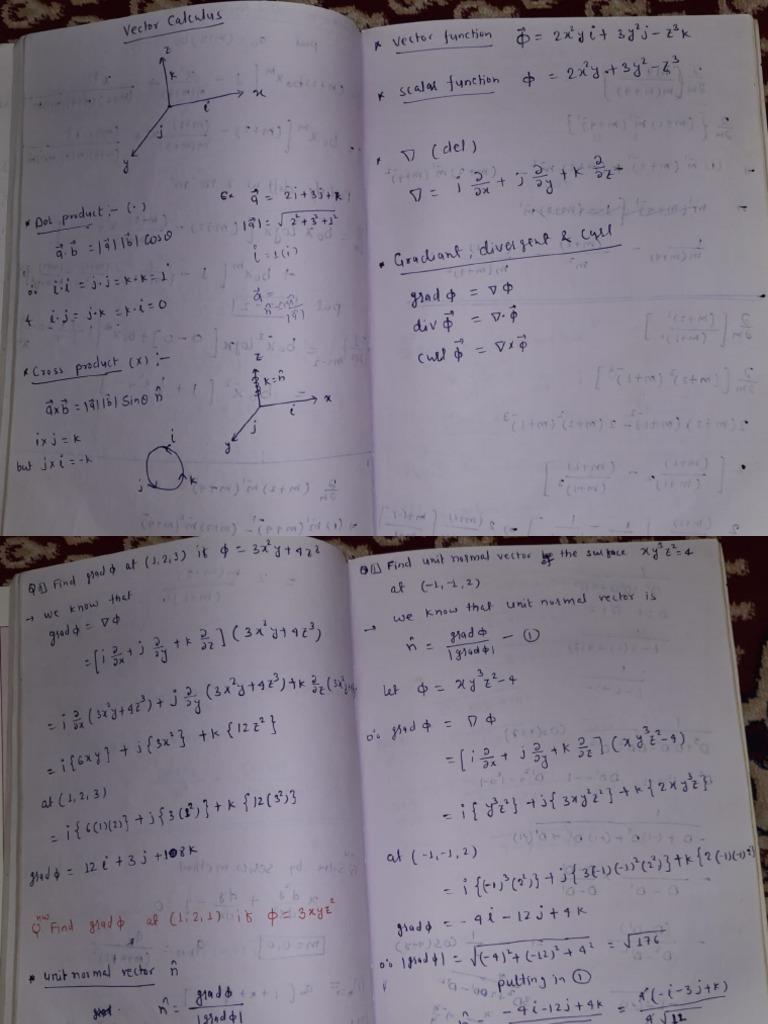 Vector Calculus
z
k
i
x
j
y
* Dot product :- (·)
Ex a⃗ = 2i+3j+k
a⃗·b⃗ = |a⃗||b⃗| cosθ
|a⃗| = √(2²+3²+1²)
i = 1(i)
∴ i·i = j·j = k·k = 1
& i·j = j·k = k·i = 0
a⃗ =
* Cross product (x) :-
z
k=n̂
x
i
j
y
a⃗×b⃗ = |a⃗||b⃗| Sinθ n̂
i×j = k
but j×i = -k
i
j
k
* Vector function Φ⃗ = 2x²y i + 3y²j - z³k
* Scalar function Φ = 2x²y + 3y² - z³
* ∇ (del)
∇ = i ∂/∂x + j ∂/∂y + k ∂/∂z
* Gradiant, divergent & Curl
grad Φ = ∇Φ
div Φ⃗ = ∇·Φ⃗
Curl Φ⃗ = ∇×Φ⃗
Q.1) Find grad Φ at (1,2,3) if Φ = 3x²y+4z³
→ we know that
grad Φ = ∇Φ
= [i ∂/∂x + j ∂/∂y + k ∂/∂z] (3x²y+4z³)
= i ∂/∂x (3x²y+4z³) + j ∂/∂y (3x²y+4z³) + k ∂/∂z (3x²y+
= i{6xy} + j{3x²} + k{12z²}
at (1,2,3)
= i{6(1)(2)} + j{3(1²)} + k{12(3²)}
grad Φ = 12i + 3j + 108k
HW
Q. Find grad Φ at (1,2,1) if Φ = 3xyz²
* Unit normal vector n̂
n̂ = grad Φ / |grad Φ|
Q.1) Find unit normal vector of the surface xy³z²=4
at (-1,-1,2)
→ we know that unit normal vector is
n̂ = grad Φ / |grad Φ| — ①
Let Φ = xy³z²-4
∴ grad Φ = ∇Φ
= [i ∂/∂x + j ∂/∂y + k ∂/∂z] (xy³z²-4)
= i{y³z²} + j{3xy²z²} + k{2xy³z}
at (-1,-1,2)
= i{(-1)³(2²)} + j{3(-1)(-1)²(2²)} + k{2(-1)(-1)³2}
grad Φ = -4i - 12j + 4k
∴ |grad Φ| = √((-4)²+(-12)²+4²) = √176
putting in ①
n̂ = -4i-12j+4k = 4(-i-3j+k) / 4√11